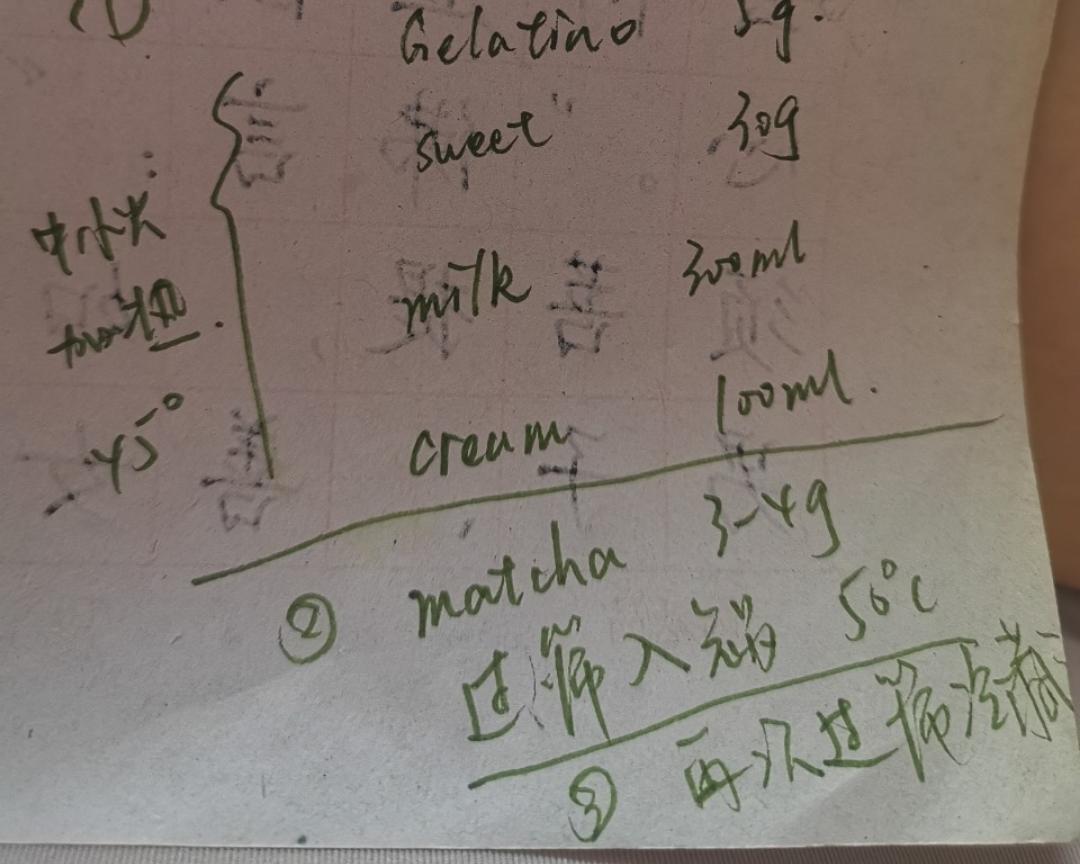 Gelatino 5g.
sweet 30g
中小火
milk 300ml
45°
cream 100ml.
② matcha 3-4g
过筛入锅 50°C
③ 再次过筛冷藏